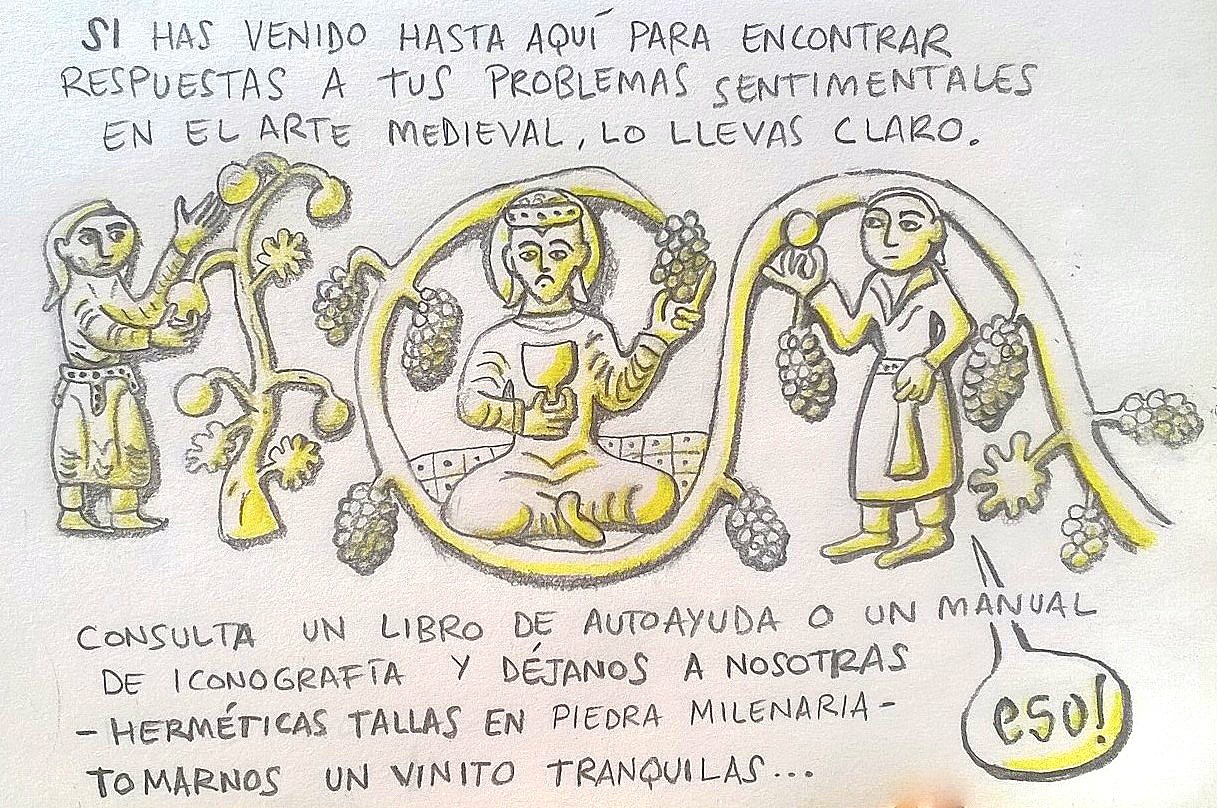 SI HAS VENIDO HASTA AQUÍ PARA ENCONTRAR
RESPUESTAS A TUS PROBLEMAS SENTIMENTALES
EN EL ARTE MEDIEVAL, LO LLEVAS CLARO.
CONSULTA UN LIBRO DE AUTOAYUDA O UN MANUAL
DE ICONOGRAFÍA Y DÉJANOS A NOSOTRAS
-HERMÉTICAS TALLAS EN PIEDRA MILENARIA-
TOMARNOS UN VINITO TRANQUILAS...
eso!